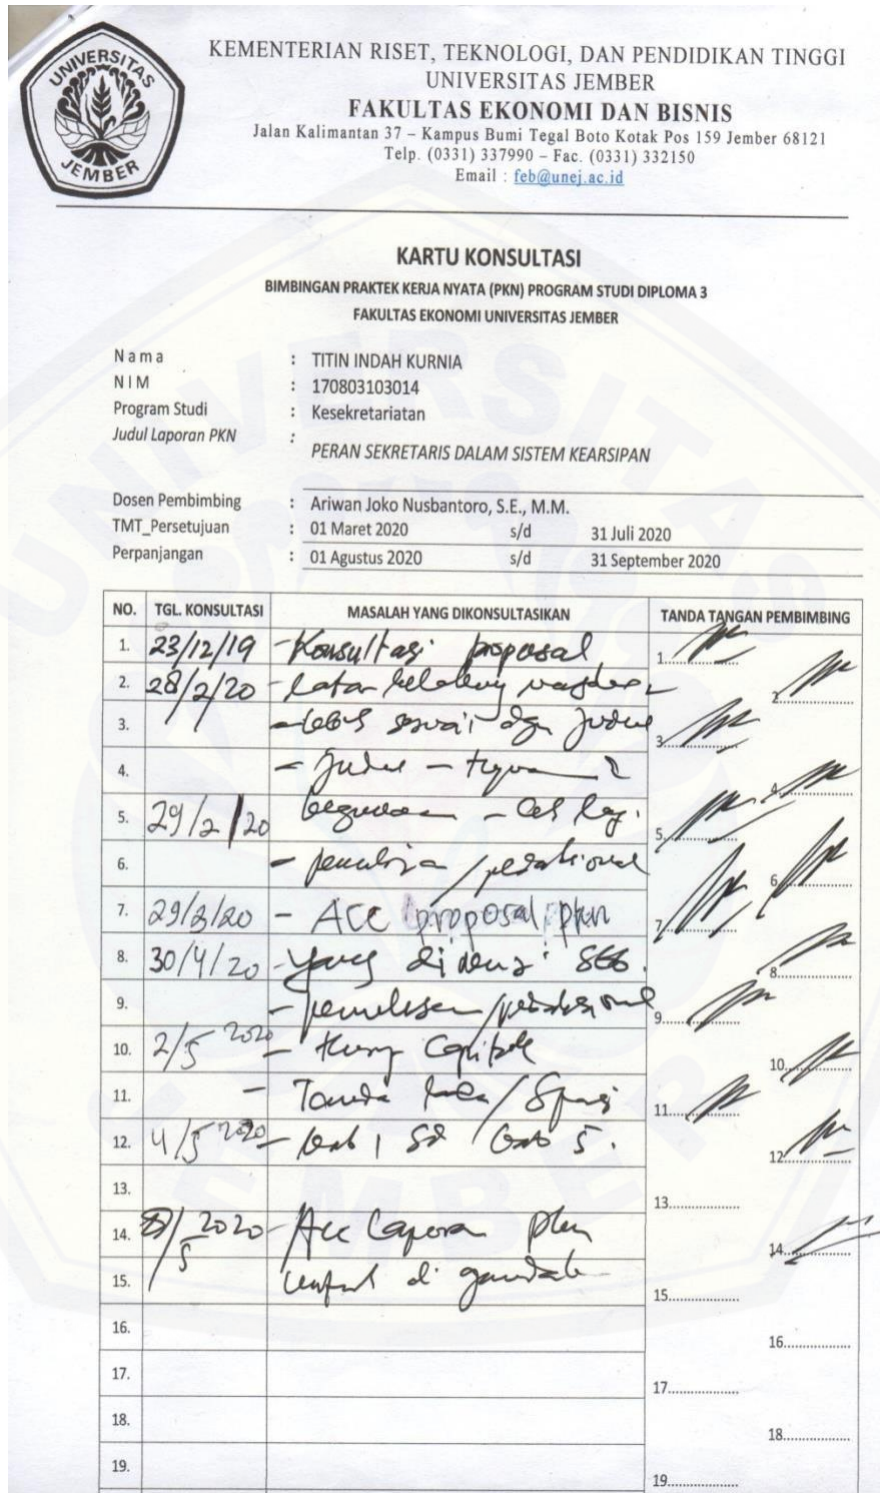 UNIVERSITAS
JEMBER
KEMENTERIAN RISET, TEKNOLOGI, DAN PENDIDIKAN TINGGI
UNIVERSITAS JEMBER
FAKULTAS EKONOMI DAN BISNIS
Jalan Kalimantan 37 – Kampus Bumi Tegal Boto Kotak Pos 159 Jember 68121
Telp. (0331) 337990 – Fac. (0331) 332150
Email : feb@unej.ac.id
KARTU KONSULTASI
BIMBINGAN PRAKTEK KERJA NYATA (PKN) PROGRAM STUDI DIPLOMA 3
FAKULTAS EKONOMI UNIVERSITAS JEMBER
N a m a : TITIN INDAH KURNIA
N I M : 170803103014
Program Studi : Kesekretariatan
Judul Laporan PKN :
PERAN SEKRETARIS DALAM SISTEM KEARSIPAN
Dosen Pembimbing : Ariwan Joko Nusbantoro, S.E., M.M.
TMT_Persetujuan : 01 Maret 2020 s/d 31 Juli 2020
Perpanjangan : 01 Agustus 2020 s/d 31 September 2020
NO. TGL. KONSULTASI MASALAH YANG DIKONSULTASIKAN TANDA TANGAN PEMBIMBING
1. 23/12/19 - Konsultasi proposal 1
2. 28/2/20 - Latar belakang 2
3. dgn judul 3
4. - Judul - 4
5. 29/2/20 - 5
6. - 6
7. 29/3/20 - ACC proposal pkn 7
8. 30/4/20 - yang di 8
9. - 9
10. 2/5 2020 - 10
11. - Tanda baca / Spasi 11
12. 4/5 2020 - bab 1 sd bab 5. 12
13. 13
14. /5 2020 - Acc Laporan pkn 14
15. untuk di 15
16. 16
17. 17
18. 18
19. 19